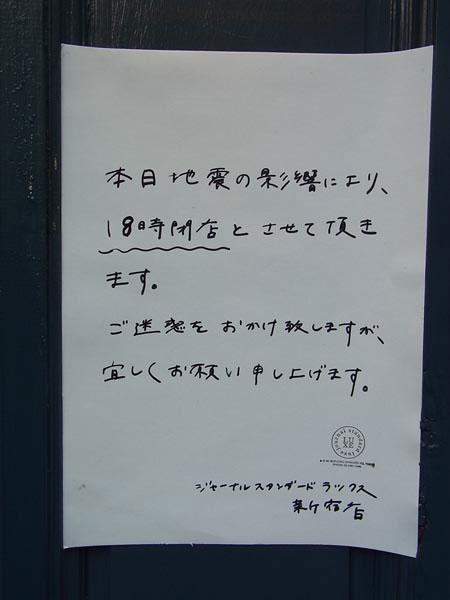 本日地震の影響により、
18時閉店とさせて頂き
ます。
ご迷惑をおかけ致しますが、
宜しくお願い申し上げます。
journal standard luxe
LU
XE
ジャーナルスタンダード ラックス
新宿店